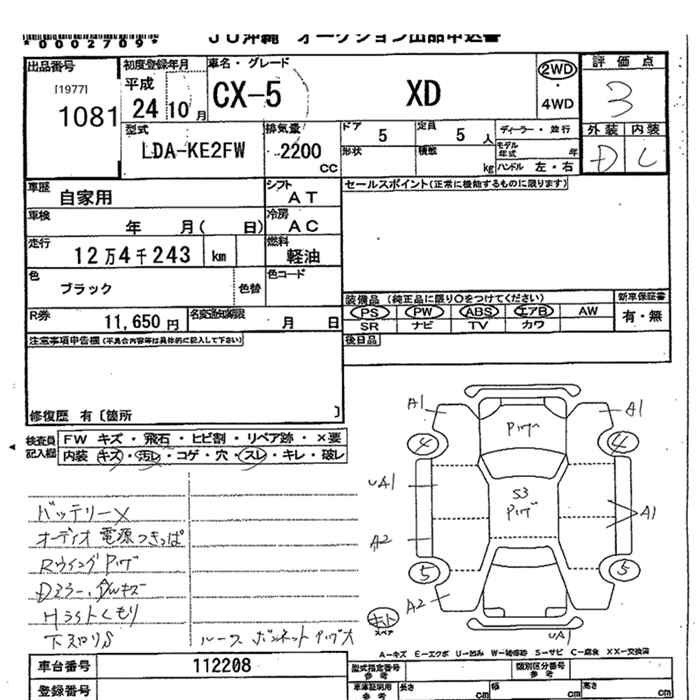 *0002709*
JU沖縄 オークション出品申込書
出品番号
[1977]
1081
初度登録年月
平成
24 10 月
車名・グレード
CX-5 XD
2WD
・
4WD
評価点
3
外装 内装
D C
型式
LDA-KE2FW
排気量
2200
CC
ドア
5
定員
5 人
ディーラー・並行
形状
積載
kg
モデル年式 年
ハンドル 左・右
車歴
自家用
シフト
AT
セールスポイント(正常に機能するものに限ります)
車検
年 月( 日)
冷房
AC
走行
12万4千243 km
燃料
軽油
色
ブラック
色替
色コード
R券
11,650 円
名変通知期限
月 日
装備品(純正品に限り○をつけてください)
新車保証書
PS PW ABS エアB AW
有・無
SR ナビ TV カワ
後日品
注意事項申告欄(不具合内容等は具体的に記入して下さい)
修復歴 有〔箇所 〕
検査員記入欄
FW キズ・飛石・ヒビ割・リペア跡・×要
内装 キズ・汚レ・コゲ・穴・スレ・キレ・破レ
バッテリー×
オーディオ電源つきっぱ
Dミラー,
Hライトくもり
A1
A1
4
4
UA1
S3
A1
A2
5
5
A2
スペア
UA1
A-キズ E-エクボ U-凹み W-補修跡 S-サビ C-腐食 XX-交換済
車台番号
112208
登録番号
型式指定番号
参考
類別区分番号
参考
車庫証明用
参考
長さ cm
幅 cm
高さ cm